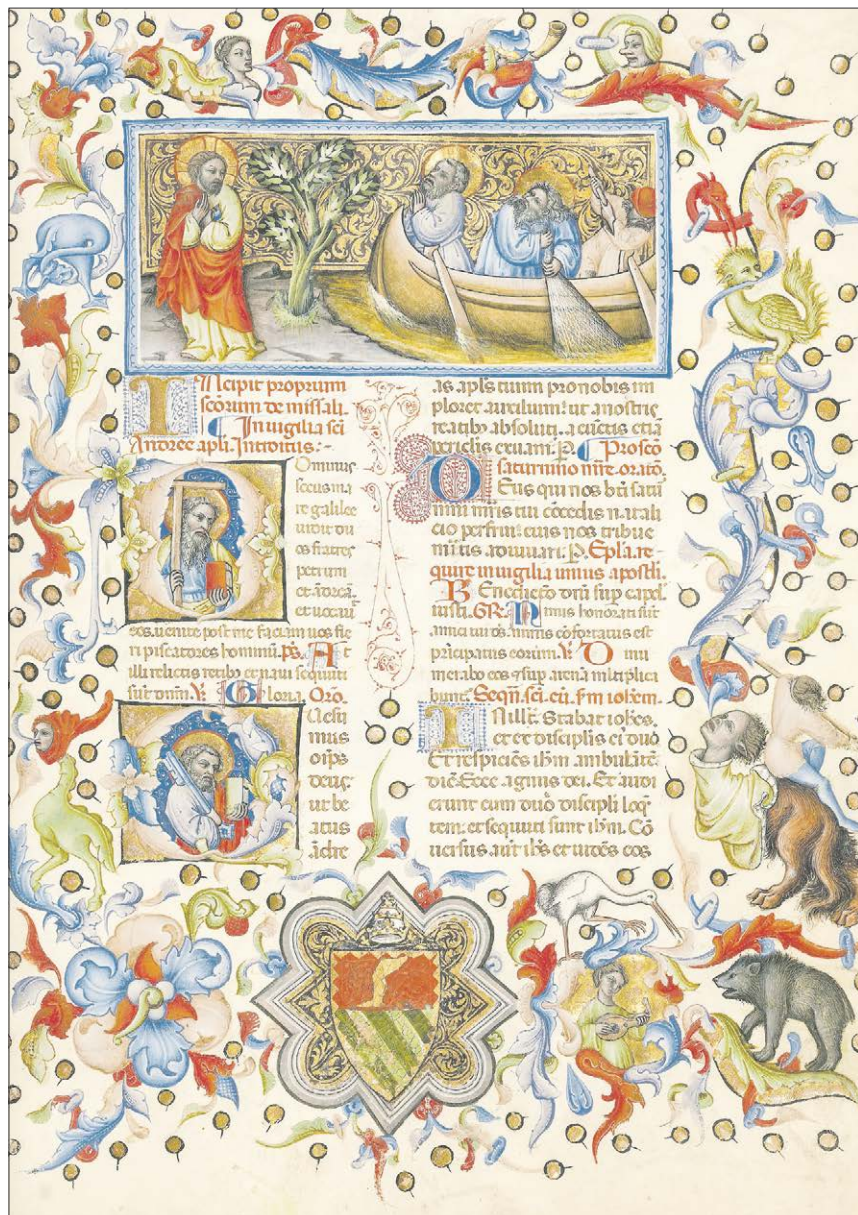 INcipit proprium
scōrum de missali.
In vigilia sci
Andree apli. Introitus:-
Dominus
secus ma
re galilee
vidit du
os fratres
petrum
et ādreā.
et vocavit
eos. venite post me faciam vos fie
ri piscatores hominū. Ps. At
illi relictis retibꝰ et navi sequuti
sūt dnm. V. Gloria. Oro.
Quesu
mus
oips
deus:
ut be
atus
ādre
as apls tuum pro nobis im
ploret auxilium: ut a nostris
reatibꝰ absoluti. a cūctis etiā
periclis eruam. P. Pro sco
saturnino mre. orato.
Deus qui nos bti satur
nini mris tui cōcedis natali
cio perfrui: eius nos tribue
mitis adiuvari. P. Epla re
quire in vigilia unius apostli.
Benedictio dni sup caput
iusti. GR. Nimis honorati sūt
amici tui ds. nimis cōfortatus est
pricipatus eorum. V. Dinu
merabo eos et sup arena mltiplica
bunt. Sequ. sci. eu. sm iohem.
In illo. Stabat iohes.
et ex disciplis eiꝰ duo
Et respiciēs ihm ambulāte.
dic. Ecce agnus dei. Et audi
erunt eum duo discipli loq
tem. et sequuti sunt ihm. Cō
versus aut ihs et vides eos